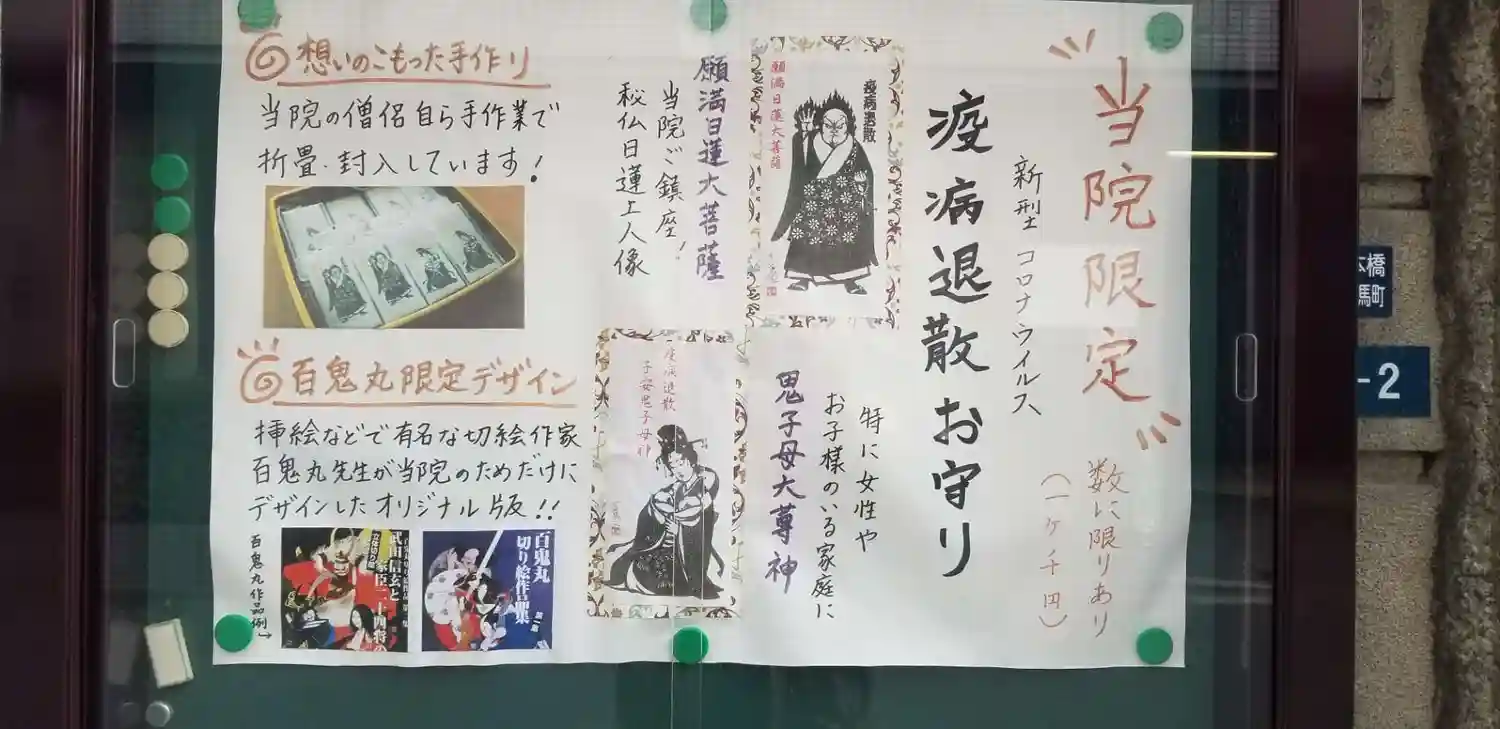 当院限定
数に限りあり
(一ヶ千円)
新型コロナウイルス
疫病退散お守り
疫病退散
願満日蓮大菩薩
願満日蓮大菩薩
当院ご鎮座!
秘仏日蓮上人像
特に女性や
お子様のいる家庭に
鬼子母大尊神
疫病退散
子安鬼子母神
想いのこもった手作り
当院の僧侶自ら手作業で
折畳・封入しています!
百鬼丸限定デザイン
挿絵などで有名な切絵作家
百鬼丸先生が当院のためだけに
デザインしたオリジナル版!!
百鬼丸作品例→
武田信玄と
家臣二十四将の
立体切り絵
百鬼丸
切り絵作品集
第一集
本橋
馬町
-2